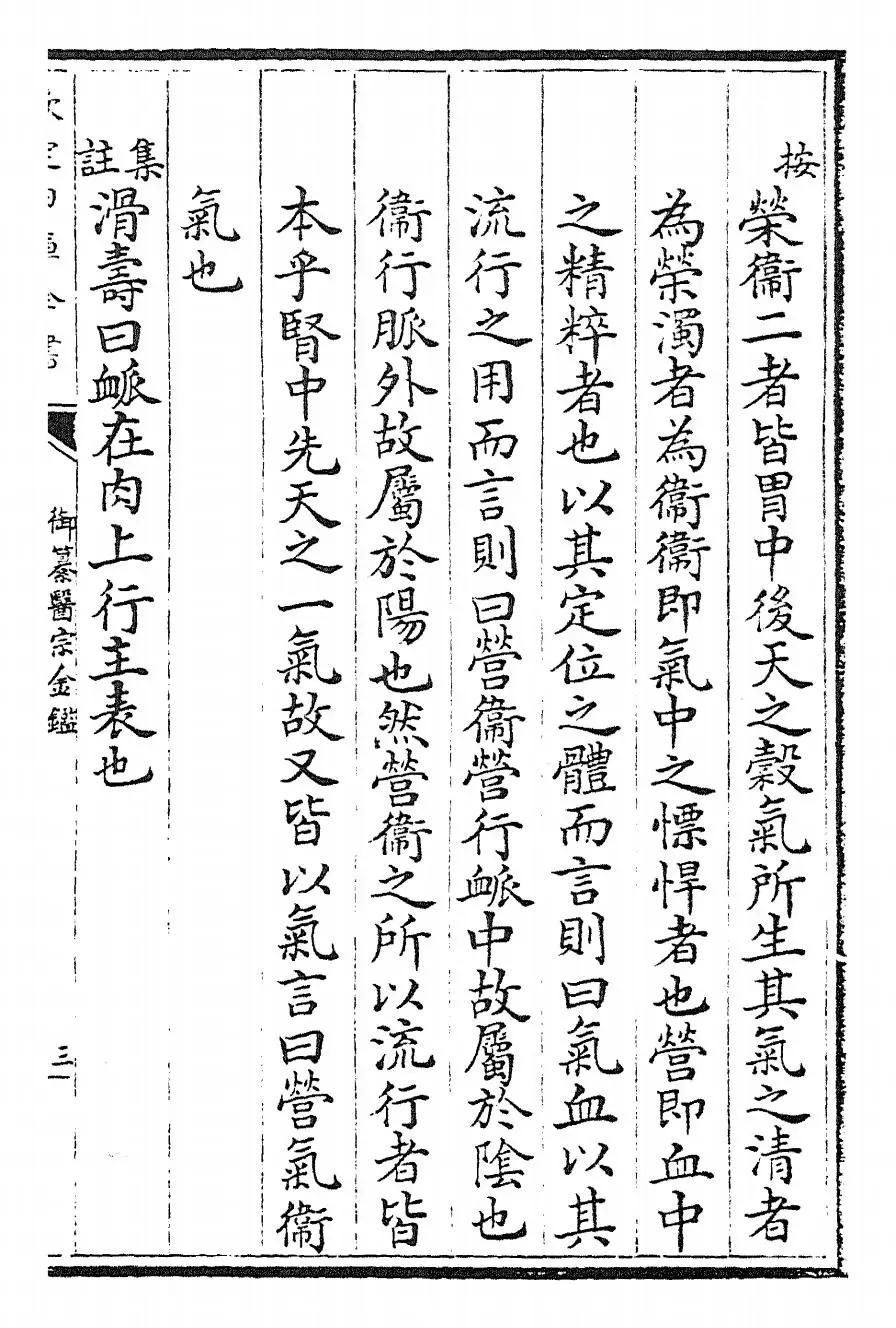 按
榮衞二者皆胃中後天之穀氣所生其氣之清者
為榮濁者為衞衞即氣中之慓悍者也營即血中
之精粹者也以其定位之體而言則曰氣血以其
流行之用而言則曰營衞營行衇中故屬於隂也
衞行脈外故屬於陽也然營衞之所以流行者皆
本乎腎中先天之一氣故又皆以氣言曰營氣衞
氣也
集註
滑壽曰衇在肉上行主表也
御纂醫宗金鑑